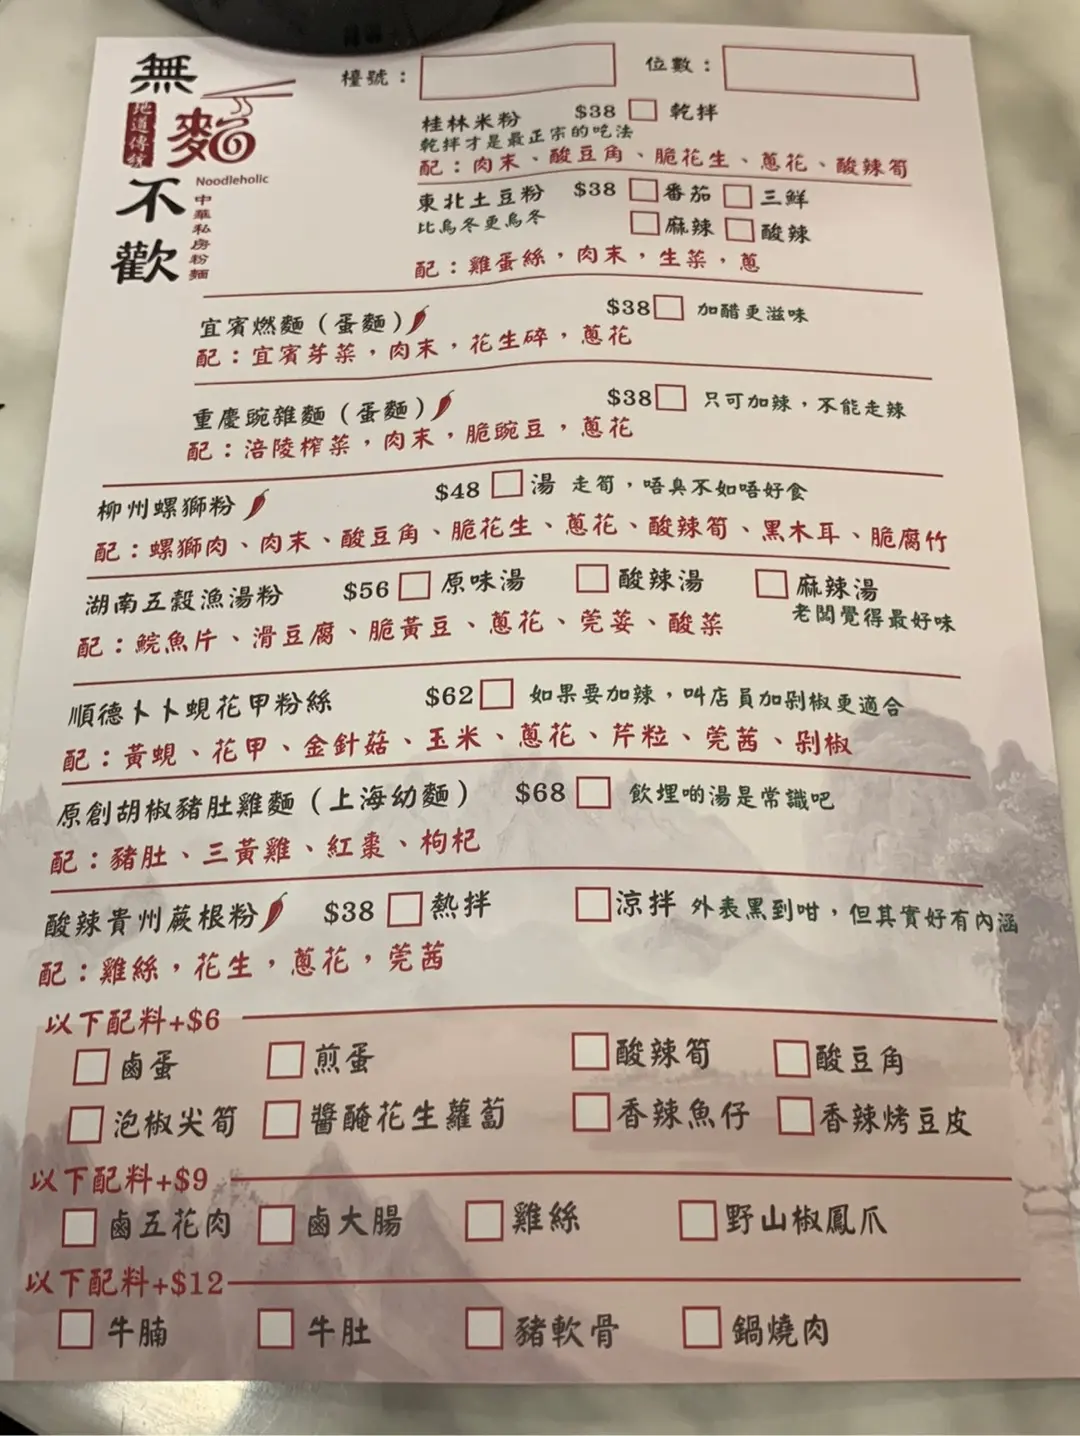 無麵不歡
地道傳統
Noodleholic
中華私房粉麵
檯號：
位數：
桂林米粉 $38 □ 乾拌
乾拌才是最正宗的吃法
配：肉末、酸豆角、脆花生、蔥花、酸辣筍
東北土豆粉 $38 □ 番茄 □ 三鮮
比烏冬更烏冬 □ 麻辣 □ 酸辣
配：雞蛋絲，肉末，生菜，蔥
宜賓燃麵（蛋麵） $38 □ 加醋更滋味
配：宜賓芽菜，肉末，花生碎，蔥花
重慶豌雜麵（蛋麵） $38 □ 只可加辣，不能走辣
配：涪陵榨菜，肉末，脆豌豆，蔥花
柳州螺獅粉 $48 □ 湯 走筍，唔臭不如唔好食
配：螺獅肉、肉末、酸豆角、脆花生、蔥花、酸辣筍、黑木耳、脆腐竹
湖南五穀漁湯粉 $56 □ 原味湯 □ 酸辣湯 □ 麻辣湯
老闆覺得最好味
配：鯇魚片、滑豆腐、脆黃豆、蔥花、芫荽、酸菜
順德卜卜蜆花甲粉絲 $62 □ 如果要加辣，叫店員加剁椒更適合
配：黃蜆、花甲、金針菇、玉米、蔥花、芹粒、芫茜、剁椒
原創胡椒豬肚雞麵（上海幼麵） $68 □ 飲埋啲湯是常識吧
配：豬肚、三黃雞、紅棗、枸杞
酸辣貴州蕨根粉 $38 □ 熱拌 □ 涼拌 外表黑到咁，但其實好有內涵
配：雞絲，花生，蔥花，芫茜
以下配料+$6
□ 鹵蛋 □ 煎蛋 □ 酸辣筍 □ 酸豆角
□ 泡椒尖筍 □ 醬醃花生蘿蔔 □ 香辣魚仔 □ 香辣烤豆皮
以下配料+$9
□ 鹵五花肉 □ 鹵大腸 □ 雞絲 □ 野山椒鳳爪
以下配料+$12
□ 牛腩 □ 牛肚 □ 豬軟骨 □ 鍋燒肉